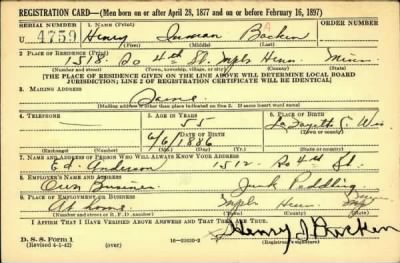 REGISTRATION CARD—(Men born on or after April 28, 1877 and on or before February 16, 1897)
SERIAL NUMBER 1. NAME (Print) ORDER NUMBER
U 4759 Henry Inman Bocken
(First) (Middle) (Last)
2. PLACE OF RESIDENCE (Print)
1518 So 4th St. Mpls Henn. Minn
(Number and street) (Town, township, village, or city) (County) (State)
[THE PLACE OF RESIDENCE GIVEN ON THE LINE ABOVE WILL DETERMINE LOCAL BOARD
JURISDICTION; LINE 2 OF REGISTRATION CERTIFICATE WILL BE IDENTICAL]
3. MAILING ADDRESS
Same
[Mailing address if other than place indicated on line 2. If same insert word same]
4. TELEPHONE 5. AGE IN YEARS 6. PLACE OF BIRTH
55 La Fayette C
DATE OF BIRTH (Town or county)
6/6/1886 Wis
(Exchange) (Number) (Mo.) (Day) (Yr.) (State or country)
7. NAME AND ADDRESS OF PERSON WHO WILL ALWAYS KNOW YOUR ADDRESS
Ed. Anderson 1512 So 4th St.
8. EMPLOYER'S NAME AND ADDRESS
Own Business Junk Peddling
9. PLACE OF EMPLOYMENT OR BUSINESS
At home Mpls Henn
(Number and street or R. F. D. number) (Town) (County) (State)
I AFFIRM THAT I HAVE VERIFIED ABOVE ANSWERS AND THAT THEY ARE TRUE.
D. S. S. Form 1 Henry I Bocken
(Revised 4-1-42) (over) (Registrant's signature)